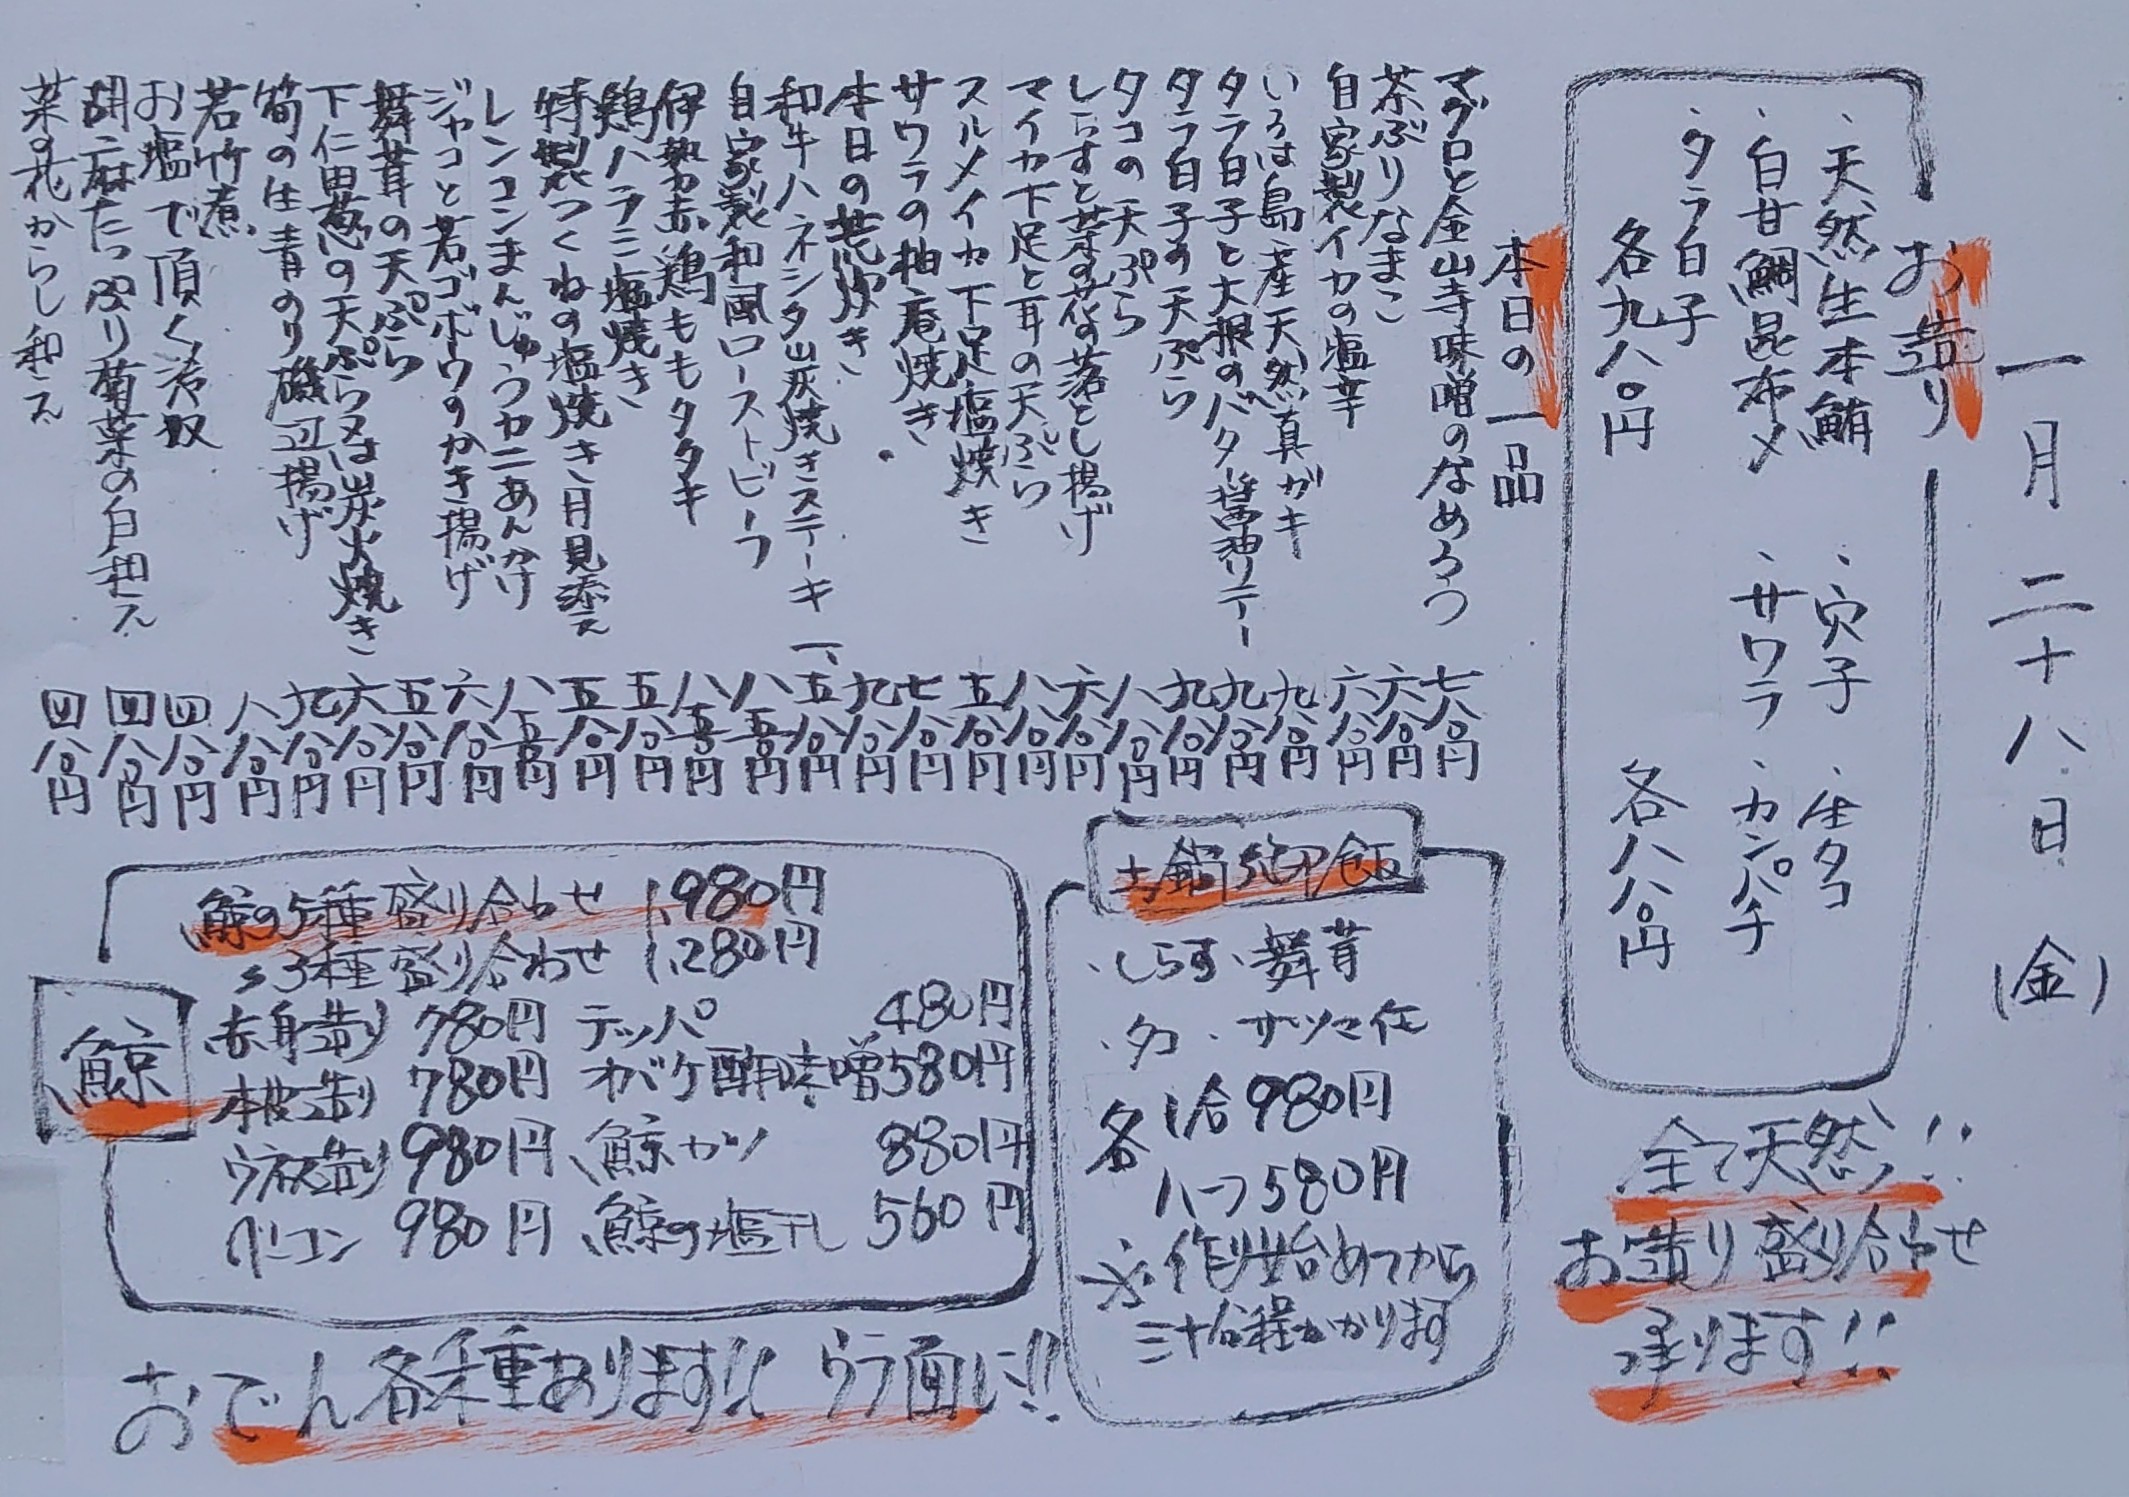 一月二十八日(金)
お造り
・天然生本鮪
・白甘鯛昆布〆
・タラ白子
各九八〇円
・穴子
・サワラ
・生タコ
・カンパチ
各八八〇円
全て天然!!
お造り盛り合わせ
承ります!!
本日の一品
マグロと金山寺味噌のなめろう 七八〇円
茶ぶりなまこ 六八〇円
自家製イカの塩辛 六八〇円
いろは島産天然真ガキ 九八〇円
タラ白子と大根のバター醤油ソテー 九八〇円
タラ白子の天ぷら 九八〇円
タコの天ぷら 八八〇円
しらすと菜の花の落とし揚げ 六八〇円
マイカ下足と耳の天ぷら 八八〇円
スルメイカ下足塩焼き 五八〇円
サワラの柚庵焼き 七八〇円
本日の荒炊き 九八〇円
和牛ハネシタ炭焼きステーキ 一、五八〇円
自家製和風ローストビーフ 八五〇円
伊勢赤鶏ももタタキ 八五〇円
鶏ハラミ塩焼き 五八〇円
特製つくねの塩焼き月見添え 五八〇円
レンコンまんじゅうカニあんかけ 八五〇円
ジャコと若ゴボウのかき揚げ 六八〇円
舞茸の天ぷら 五八〇円
下仁田葱の天ぷら又は炭火焼き 六八〇円
筍の生青のり磯辺揚げ 九八〇円
若竹煮 八八〇円
お塩で頂く冷奴 四八〇円
胡麻たっぷり菊菜の白和え 四八〇円
菜の花からし和え 四八〇円
土鍋御飯
・しらす・舞茸
・タコ・サツマ芋
各 1合 980円
ハーフ 580円
※作り始めてから
三十分程かかります
鯨
鯨の5種盛り合わせ 1,980円
〃3種盛り合わせ 1,280円
赤身造り 780円 テッパ 480円
本皮造り 780円 オバケ酢味噌 580円
ウネス造り 980円 鯨カツ 880円
ベーコン 980円 鯨の塩干し 560円
おでん各種あります!! ウラ面に!!